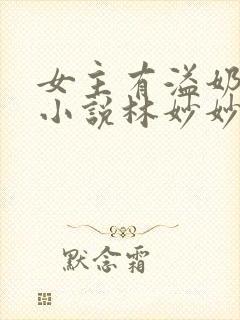 女主有溢奶
小说林妙妙
默念霜